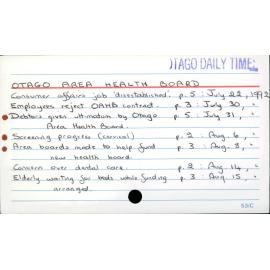 OTAGO DAILY TIMES
OTAGO AREA HEALTH BOARD
Consumer affairs job 'disestablished'. p. 5 : July 22, 1992
Employees reject OAHB contract. p. 3 : July 30, "
Debtors given ultimatum by Otago p. 5 : July 31, "
Area Health Board.
Screening progress (cervical) p. 2 : Aug. 6, "
Area boards made to help fund p. 3 : Aug. 8, "
new health board.
Concern over dental care. p. 2 : Aug. 14, "
Elderly waiting for beds while funding p. 3 : Aug 15, "
arranged.